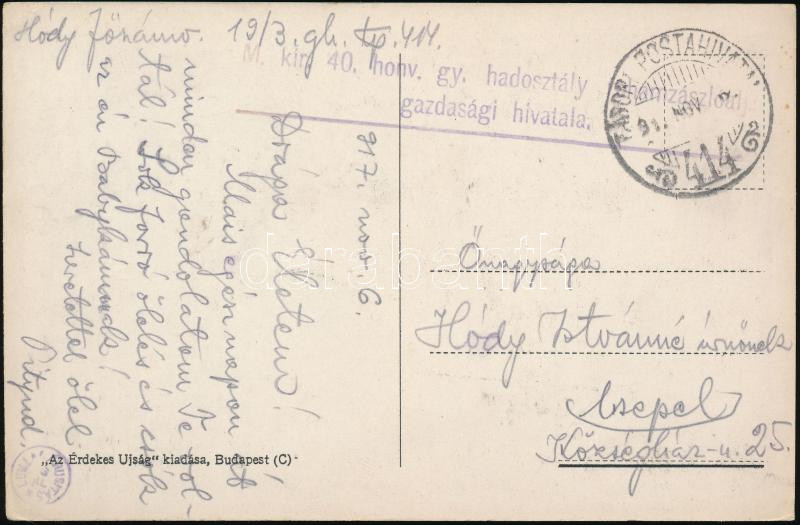 Hódy Főhadn. 19/3. gh. Tp. 414.
M. kir. 40. honv. gy. hadosztály
gazdasági hivatala.
TÁBORI POSTAHIVATAL
NOV.
414
917. nov. 6.
Drága Életem!
Ma is egész napon át
minden gondolatom Te vol-
tál! Sok forró ölelés és csók
az én Babykámnak!
Szeretettel ölel
Pityud.
Őnagysága
Hódy Istvánné úrnőnek
Csepel
Községház-u. 25.
„Az Érdekes Ujság" kiadása, Budapest (C)
darabanth